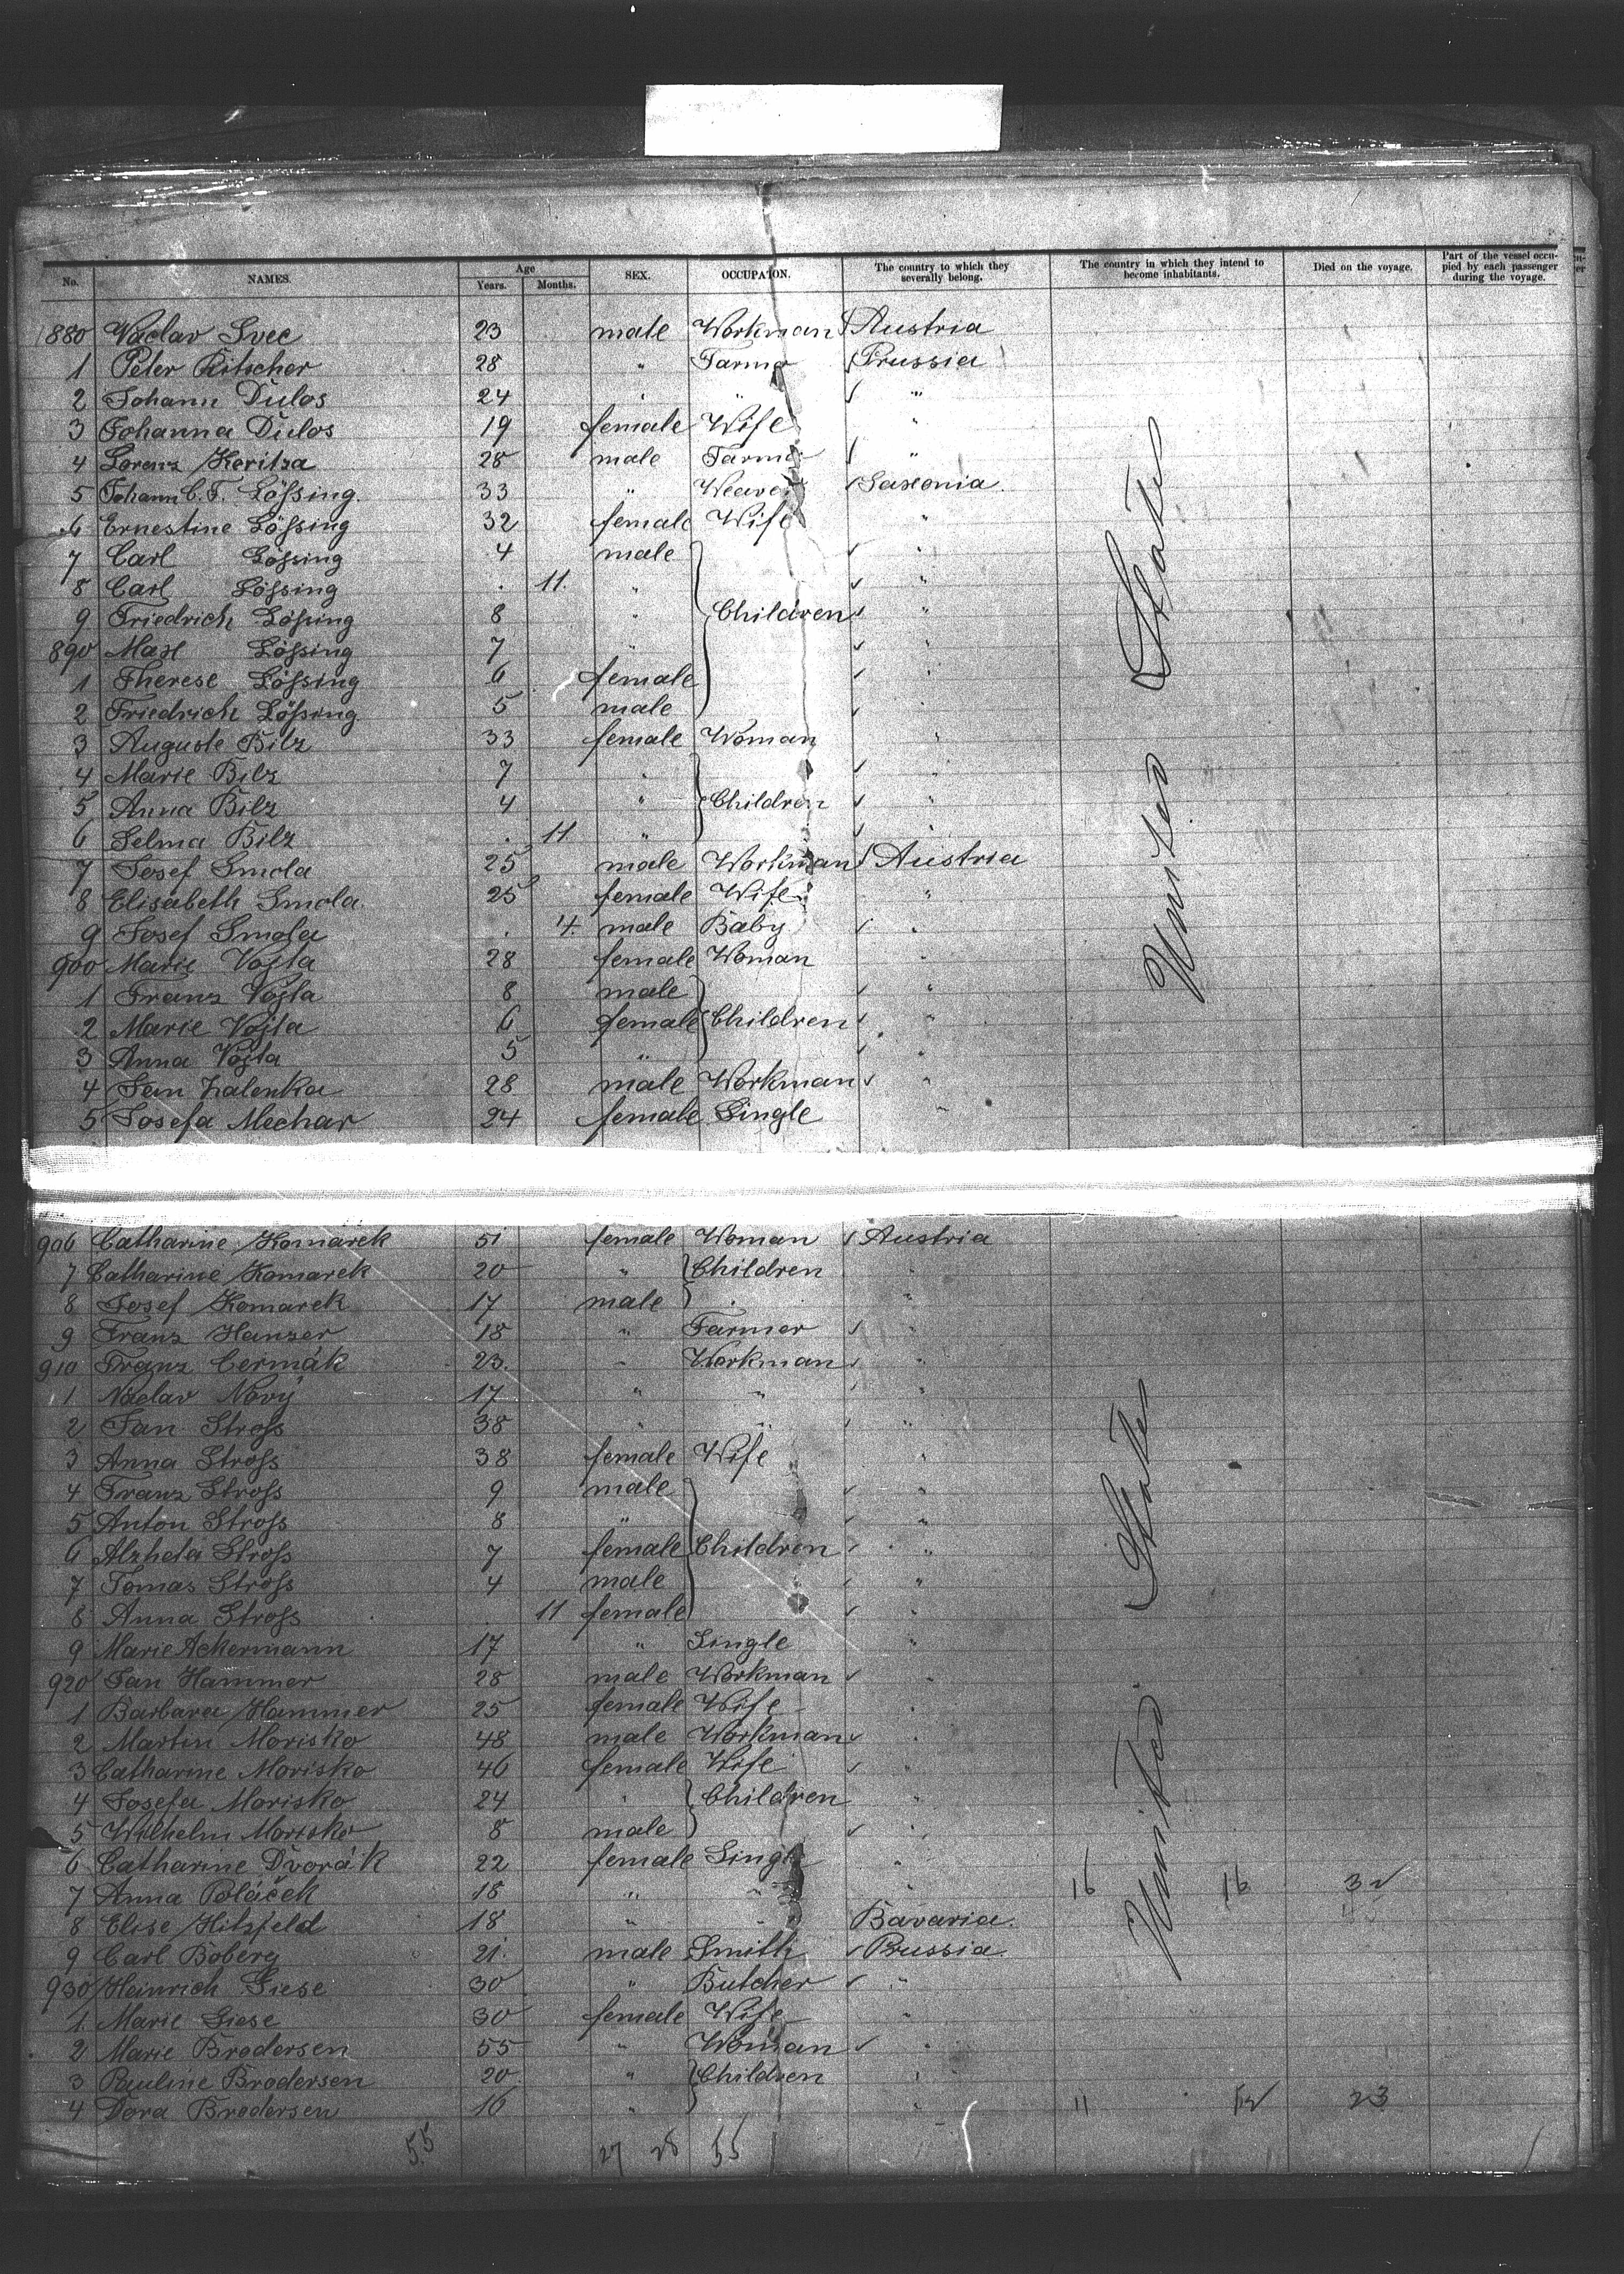 No. NAMES. Age Years. Months. SEX. OCCUPATON. The country to which they severally belong. The country in which they intend to become inhabitants. Died on the voyage. Part of the vessel occupied by each passenger during the voyage.
880 Václav Svec 23 male Workman Austria
1 Peter Ritscher 28 " Farmer Prussia
2 Johann Dulos 24 " " "
3 Johanna Dulos 19 female Wife "
4 Lorenz Koritza 28 male Farmer "
5 Johann C. F. Lößing 33 " Weaver Saxonia.
6 Ernestine Lößing 32 female Wife "
7 Carl Lößing 4 male "
8 Carl Lößing . 11. " "
9 Friedrich Lößing 8 " Children "
890 Max Lößing 7 " "
1 Therese Lößing 6 female "
2 Friedrich Lößing 5 male
3 Auguste Bilz 33 female Woman "
4 Marie Bilz 7 " "
5 Anna Bilz 4 " Children "
6 Selma Bilz . 11 " "
7 Josef Smola 25 male Workman Austria
8 Elisabeth Smola 25 female Wife "
9 Josef Smola . 4. male Baby "
900 Marie Vojta 28 female Woman "
1 Franz Vojta 8 male "
2 Marie Vojta 6 female Children "
3 Anna Vojta 5 " "
4 Jan Zalenka 28 male Workman "
5 Josefa Mechar 24 female Single "
United States
906 Catharine Komarek 51 female Woman Austria
7 Catharine Komarek 20 " Children
8 Josef Komarek 17 male "
9 Franz Hanzer 18 " Farmer "
910 Franz Cermák 23. " Workman "
1 Václav Nový 17 " " "
2 Jan Stroß 38 " " "
3 Anna Stroß 38 female Wife "
4 Franz Stroß 9 male "
5 Anton Stroß 8 " "
6 Alzheta Stroß 7 female Children "
7 Tomas Stroß 4 male "
8 Anna Stroß . 11 female "
9 Marie Ackermann 17 " Single "
920 Jan Hammer 28 male Workman "
1 Barbara Hammer 25 female Wife "
2 Martin Morisko 48 male Workman
3 Catharine Morisko 46 female Wife "
4 Josefa Morisko 24 " Children "
5 Wilhelm Morisko 8 male "
6 Catharine Dvorák 22 female Single "
7 Anna Poláček 18 " " " 16 16
8 Elise Hitzfeld 18 " " Bavaria.
9 Carl Boberg 21. male Smith Prussia
930 Heinrich Giese 30 " Butcher "
1 Marie Giese 30 female Wife "
2 Marie Brodersen 55 " Woman "
3 Pauline Brodersen 20 " Children "
4 Dora Brodersen 16 " " 11 12 23
United States
55 27 28 55